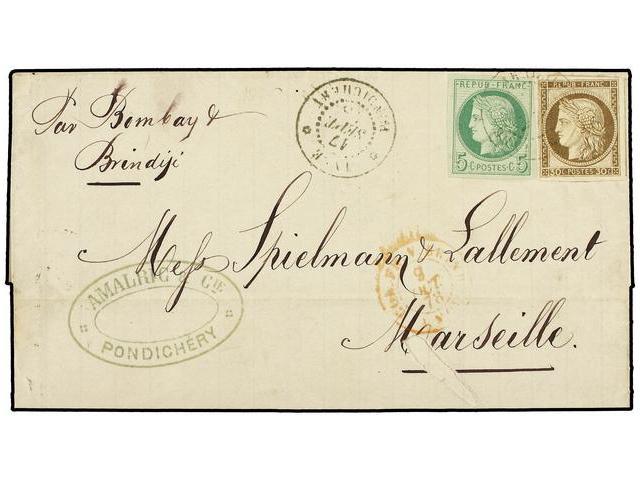 Par Bombay &
Brindiji
REPUB · FRANC
5 C · POSTES · C 5
REPUB · FRANC
30 C · POSTES · 30 C
PONDICHERY
17
SEPT
Mess Spielmann & Lallement
Marseille.
AMALRIC & Cie
PONDICHÉRY